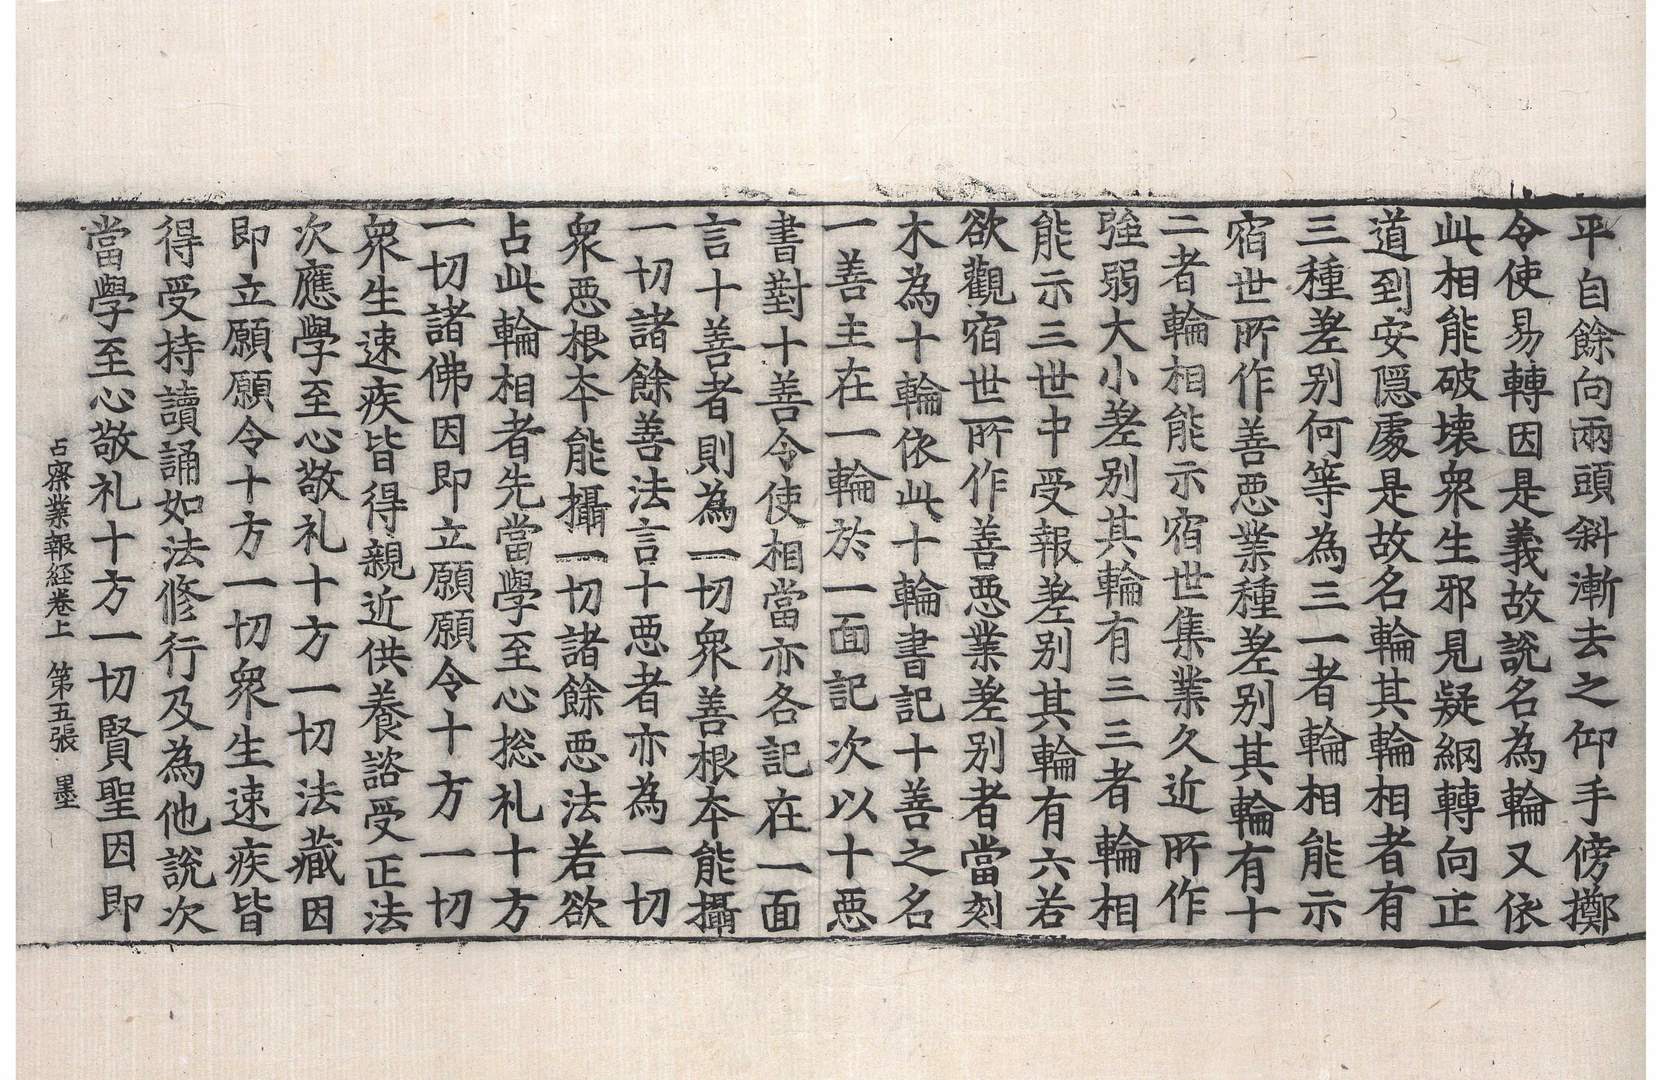 平自餘向兩頭斜漸去之仰手傍擲
令使易轉因是義故說名為輪又依
此相能破壞衆生邪見疑網轉向正
道到安隱處是故名輪其輪相者有
三種差别何等為三一者輪相能示
宿世所作善惡業種差别其輪有十
二者輪相能示宿世集業久近所作
強弱大小差别其輪有三三者輪相
能示三世中受報差别其輪有六若
欲觀宿世所作善惡業差别者當刻
木為十輪依此十輪書記十善之名
一善主在一輪於一面記次以十惡
書對十善令使相當亦各記在一面
言十善者則為一切衆善根本能攝
一切諸餘善法言十惡者亦為一切
衆惡根本能攝一切諸餘惡法若欲
占此輪相者先當學至心捴礼十方
一切諸佛因即立願願令十方一切
衆生速疾皆得親近供養諮受正法
次應學至心敬礼十方一切法藏因
即立願願令十方一切衆生速疾皆
得受持讀誦如法修行及為他說次
當學至心敬礼十方一切賢聖因即
占察業報経卷上 第五張 墨